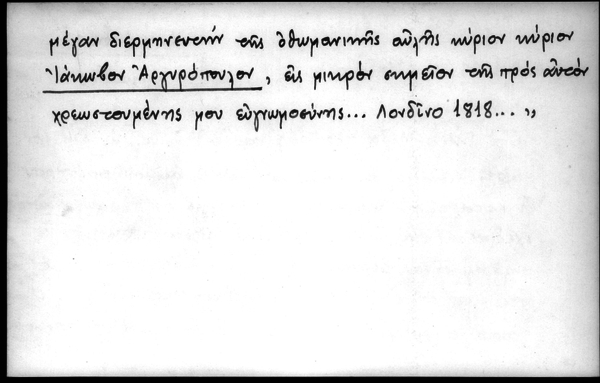 μέγαν διερμηνευτήν τῆς ὀθωμανικῆς αὐλῆς κύριον κύριον
Ἰάκωβον Ἀργυρόπουλον, εἰς μικρόν σημεῖον τῆς πρός αὐτόν
χρεωστουμένης μου εὐγνωμοσύνης... Λονδῖνο 1818... „